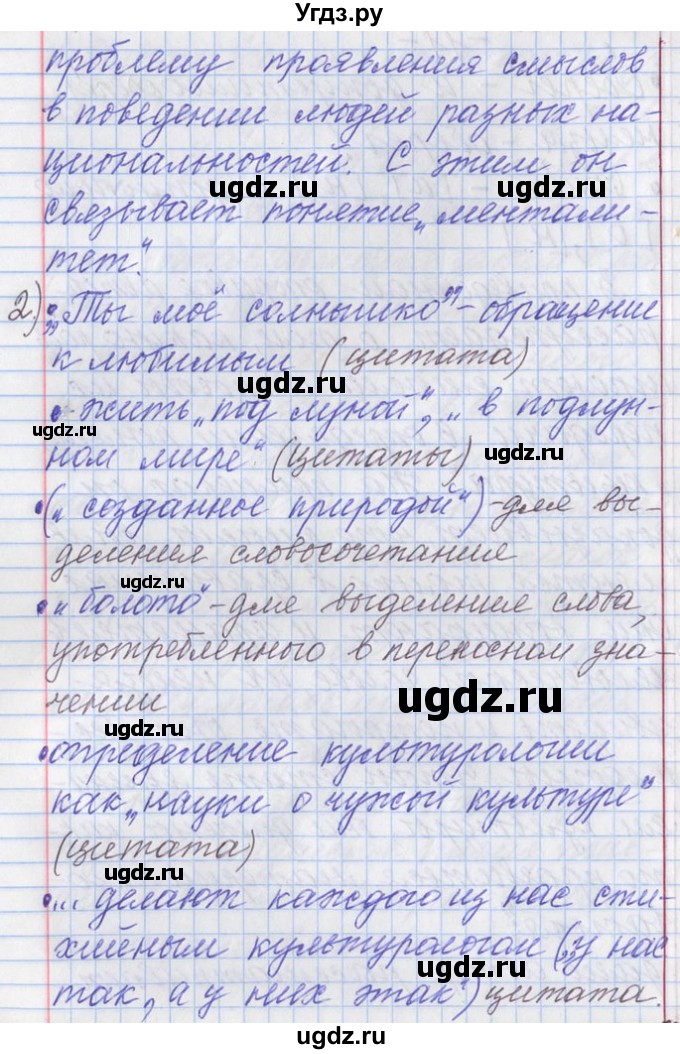 Угдз.ру
проблему проявления смыслов
в поведении людей разных на-
циональностей. С этим он
связывает понятие „ментали-
тет“.
2) • „Ты моё солнышко” - обращение
к любимым (цитата)
• жить „под луной“, „в подлун-
ном мире“ (цитаты)
• („созданное природой“) - для вы-
деления словосочетания
• „болото“ - для выделение слова,
употребленного в переносном зна-
чении
• определение культурологии
как „науки о чужой культуре”
(цитата)
• ... делают каждого из нас сти-
хийным культурологом („у нас
так, а у них этак“) цитата.
ugdz.ru
ugdz.ru
ugdz.ru
ugdz.ru
ugdz.ru
ugdz.ru
ugdz.ru
ugdz.ru
ugdz.ru
ugdz.ru
ugdz.ru
ugdz.ru